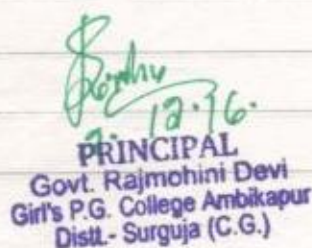 2.12.16.
PRINCIPAL
Govt. Rajmohini Devi
Girl's P.G. College Ambikapur
Distt.- Surguja (C.G.)